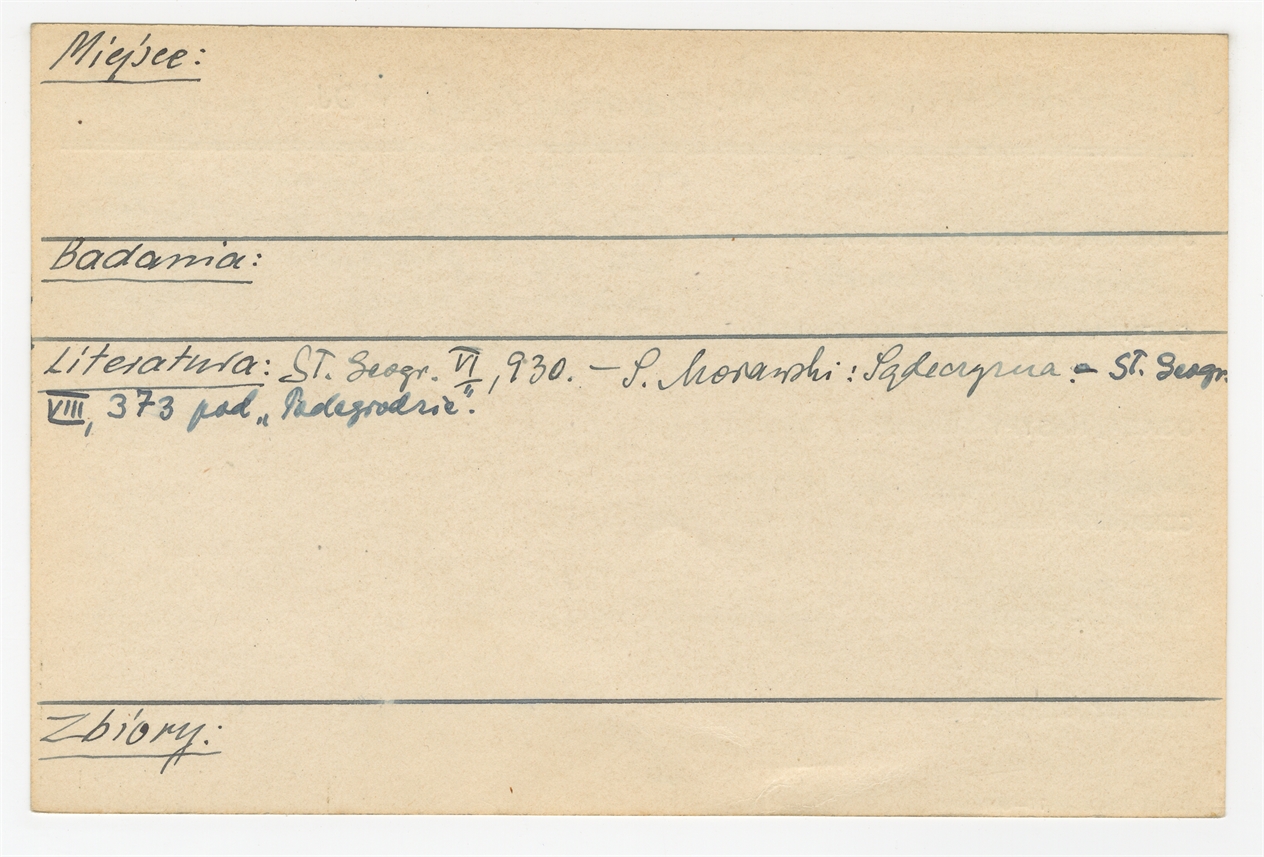 Miejsce:
Badania:
Literatura: Sł. Geogr. VI, 930. – S. Morawski: Sądeczyzna. – Sł. Geogr.
VIII, 373 pod „Podegrodzie".
Zbiory: